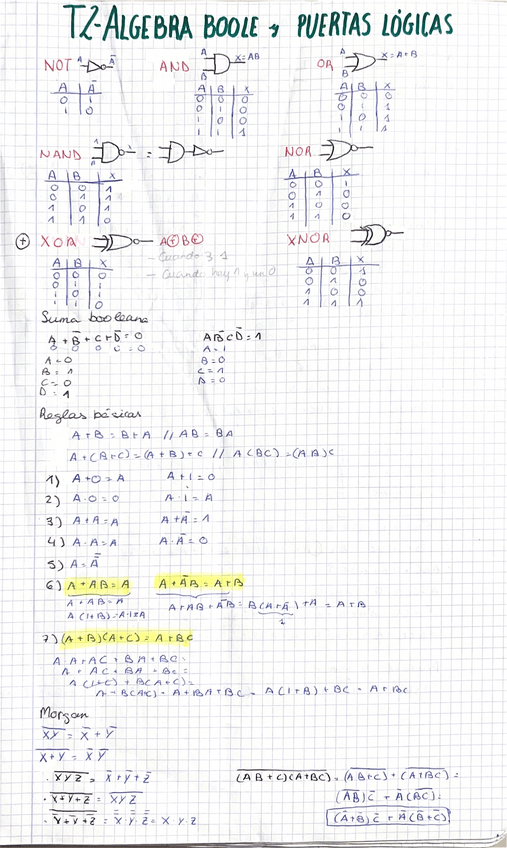 T2-ALGEBRA BOOLE y PUERTAS LÓGICAS
NOT A A̅ AND A B X=AB OR A B X=A+B
A A̅
0 1
1 0
A B X
0 0 0
0 1 0
1 0 0
1 1 1
A B X
0 0 0
0 1 1
1 0 1
1 1 1
NAND = NOR
A B X
0 0 1
0 1 1
1 0 1
1 1 0
A B X
0 0 1
0 1 0
1 0 0
1 1 0
⊕ XOR XNOR
- Cuando
- Cuando hay 1 y un 0
A B X
0 0 0
0 1 1
1 0 1
1 1 0
A B X
0 0 1
0 1 0
1 0 0
1 1 1
Suma booleana
A + B̅ + C + D̅ = 0 AB̅CD̅ = 1
0 0 0 0 = 0
A = 0 A = 1
B = 1 B = 0
C = 0 C = 1
D = 1 D = 0
Reglas básicas
A+B = B+A // AB = BA
A+(B+C) = (A+B)+C // A(BC) = (AB)C
1) A+0 = A A+1 = 0
2) A·0 = 0 A·1 = A
3) A+A = A A+A̅ = 1
4) A·A = A A·A̅ = 0
5) A = A̿
6) A+AB = A A+A̅B = A+B
A+AB = A
A(1+B) = A·1 = A
A+AB+A̅B = B(A+A̅)+A = A+B
1
7) (A+B)(A+C) = A+BC
A·A+AC+BA+BC =
A+AC+BA+BC =
A(1+C)+B(A+C) =
A+B(A+C) = A+BA+BC = A(1+B)+BC = A+BC
Morgan
X̅Y̅ = X̅ + Y̅
X̅+̅Y̅ = X̅ Y̅
· X̅Y̅Z̅ = X̅+Y̅+Z̅
(AB+C)(A+BC) = (AB+C) + (A+BC) =
(A̅B̅)C̅ + A̅(B̅C̅) =
(A̅+B̅)C̅ + A̅(B̅+C̅)